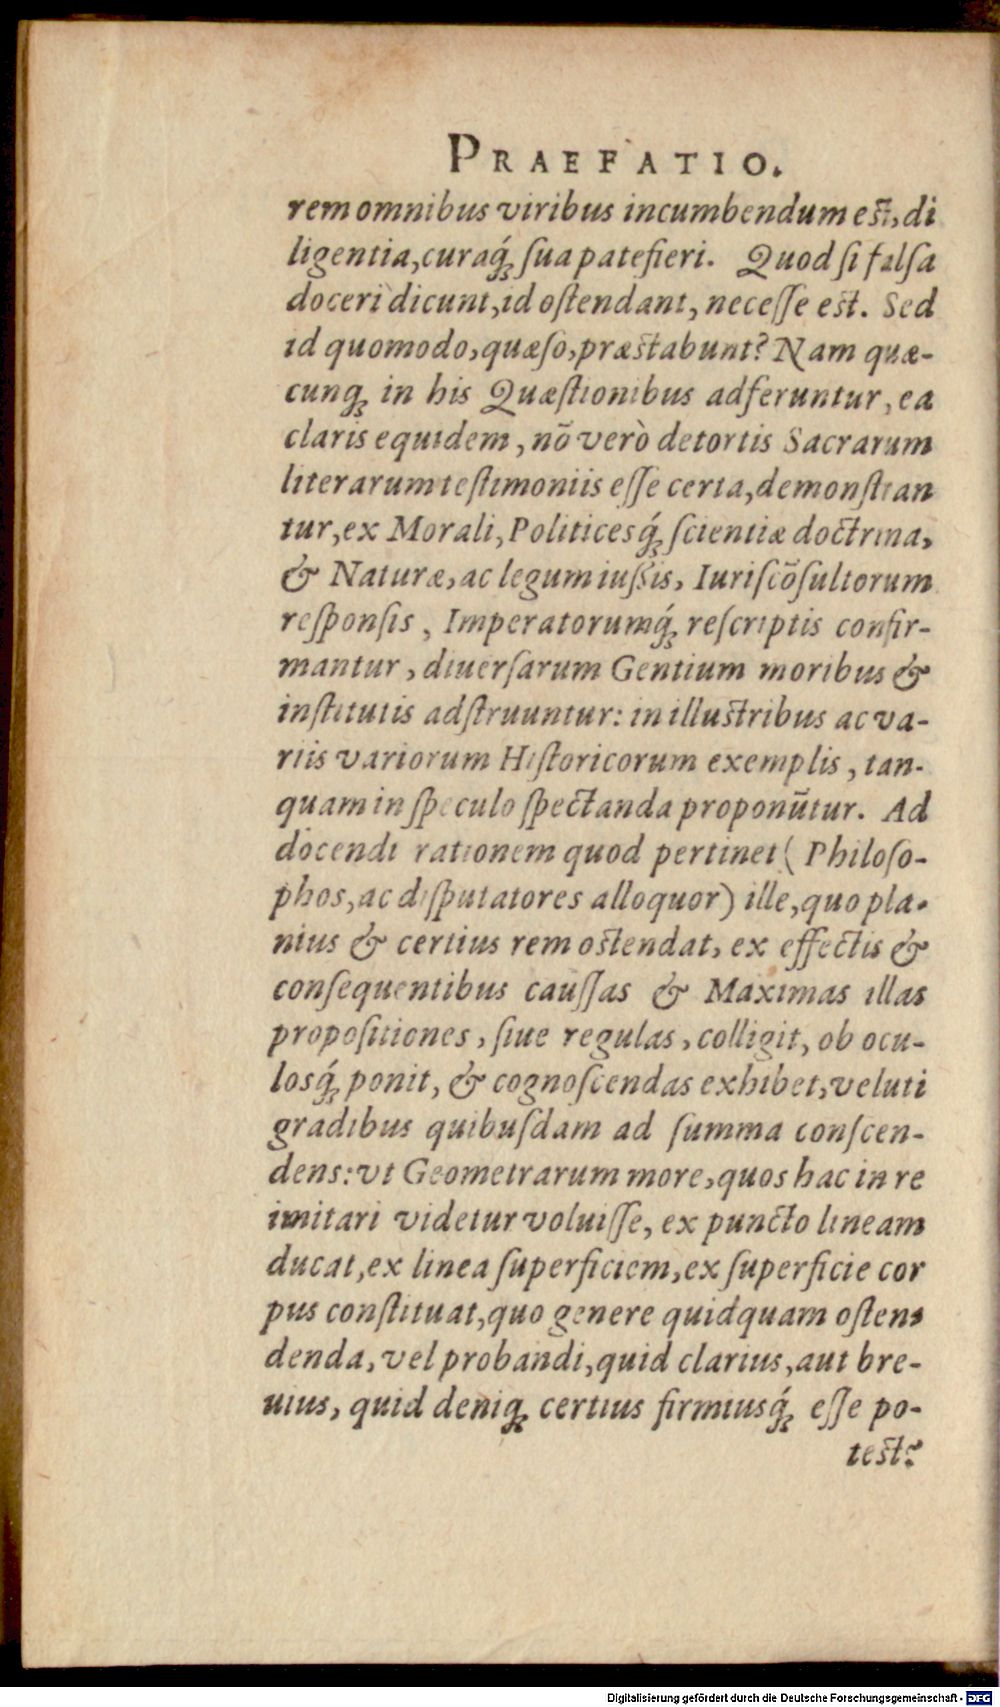 PRAEFATIO.
rem omnibus viribus incumbendum est, di
ligentia, curaq́; ſua patefieri. Quod ſi falſa
doceri dicunt, id oſtendant, neceſſe est. Sed
id quomodo, quæſo, præstabunt? Nam quæ-
cunq; in his Quæſtionibus adferuntur, ea
claris equidem, nō verò detortis Sacrarum
literarum teſtimoniis eſſe certa, demonſtran
tur, ex Morali, Politicesq́; ſcientiæ doctrina,
& Naturæ, ac legum iuſsis, Iuriſcōſultorum
reſponſis, Imperatorumq́; reſcriptis confir-
mantur, diuerſarum Gentium moribus &
inſtitutis adſtruuntur: in illustribus ac va-
riis variorum Hiſtoricorum exemplis, tan-
quam in ſpeculo ſpectanda proponūtur. Ad
docendi rationem quod pertinet ( Philoſo-
phos, ac diſputatores alloquor) ille, quo pla-
nius & certius rem ostendat, ex effectis &
conſequentibus cauſſas & Maximas illas
propoſitiones, ſiue regulas, colligit, ob ocu-
losq́; ponit, & cognoſcendas exhibet, veluti
gradibus quibuſdam ad ſumma conſcen-
dens: vt Geometrarum more, quos hac in re
imitari videtur voluiſſe, ex puncto lineam
ducat, ex linea ſuperficiem, ex ſuperficie cor
pus conſtituat, quo genere quidquam oſten-
denda, vel probandi, quid clarius, aut bre-
uius, quid deniq; certius firmiusq́; eſſe po-
test?
Digitalisierung gefördert durch die Deutsche Forschungsgemeinschaft - DFG